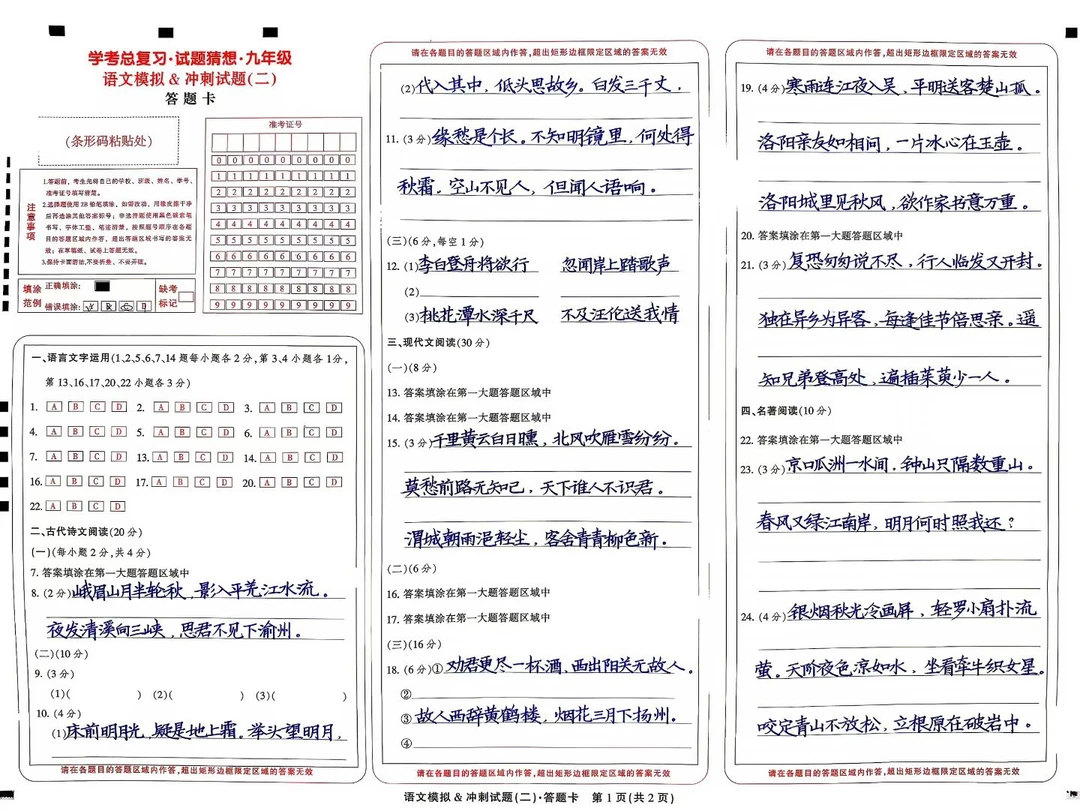 学考总复习·试题猜想·九年级
语文模拟&冲刺试题(二)
答题卡
(条形码粘贴处)
准考证号
0 0 0 0 0 0 0 0 0
1 1 1 1 1 1 1 1 1
2 2 2 2 2 2 2 2 2
3 3 3 3 3 3 3 3 3
4 4 4 4 4 4 4 4 4
5 5 5 5 5 5 5 5 5
6 6 6 6 6 6 6 6 6
7 7 7 7 7 7 7 7 7
8 8 8 8 8 8 8 8 8
9 9 9 9 9 9 9 9 9
注意事项
1.答题前,考生先将自己的学校、班级、姓名、学号、
准考证号填写清楚。
2.选择题使用2B铅笔填涂,用橡皮擦干净
后再选涂其他答案标号;非选择题使用黑色碳素笔
书写,字体工整、笔迹清楚,按照题号顺序在各题
目的答题区域内作答,超出答题区域书写的答案无
效;在草稿纸、试卷上答题无效。
3.保持卡面清洁,不要折叠、不要弄破。
填涂范例
正确填涂:
错误填涂:
缺考标记
一、语言文字运用(1、2、5、6、7、14题每小题各2分,第3、4小题各1分,
第13、16、17、20、22小题各3分)
1. A B C D 2. A B C D 3. A B C D
4. A B C D 5. A B C D 6. A B C D
7. A B C D 13. A B C D 14. A B C D
16. A B C D 17. A B C D 20. A B C D
22. A B C D
二、古代诗文阅读(20分)
(一)(每小题2分,共4分)
7. 答案填涂在第一大题答题区域中
8. (2分)峨眉山月半轮秋,影入平羌江水流。
夜发清溪向三峡,思君不见下渝州。
(二)(10分)
9. (3分)
(1)( ) (2)( ) (3)( )
10. (4分)
(1)床前明月光,疑是地上霜。举头望明月,
请在各题目的答题区域内作答,超出矩形边框限定区域的答案无效
请在各题目的答题区域内作答,超出矩形边框限定区域的答案无效
(2)代入其中,低头思故乡。白发三千丈,
11. (3分)缘愁是个长。不知明镜里,何处得
秋霜,空山不见人,但闻人语响。
(三)(6分,每空1分)
12. (1)李白登舟将欲行 忽闻岸上踏歌声
(2)
(3)桃花潭水深千尺 不及汪伦送我情
三、现代文阅读(30分)
(一)(8分)
13. 答案填涂在第一大题答题区域中
14. 答案填涂在第一大题答题区域中
15. (3分)千里黄云白日曛,北风吹雁雪纷纷。
莫愁前路无知己,天下谁人不识君。
渭城朝雨浥轻尘,客舍青青柳色新。
(二)(6分)
16. 答案填涂在第一大题答题区域中
17. 答案填涂在第一大题答题区域中
(三)(16分)
18. (6分)①劝君更尽一杯酒、西出阳关无故人。
②
③故人西辞黄鹤楼,烟花三月下扬州。
④
请在各题目的答题区域内作答,超出矩形边框限定区域的答案无效
语文模拟&冲刺试题(二)·答题卡 第1页(共2页)
请在各题目的答题区域内作答,超出矩形边框限定区域的答案无效
19. (4分)寒雨连江夜入吴,平明送客楚山孤。
洛阳亲友如相问,一片冰心在玉壶。
洛阳城里见秋风,欲作家书意万重。
20. 答案填涂在第一大题答题区域中
21. (3分)复恐匆匆说不尽,行人临发又开封。
独在异乡为异客,每逢佳节倍思亲。遥
知兄弟登高处,遍插茱萸少一人。
四、名著阅读(10分)
22. 答案填涂在第一大题答题区域中
23. (3分)京口瓜洲一水间,钟山只隔数重山。
春风又绿江南岸,明月何时照我还?
24. (4分)银烟秋光冷画屏,轻罗小扇扑流
萤。天阶夜色凉如水,坐看牵牛织女星。
咬定青山不放松,立根原在破岩中。
请在各题目的答题区域内作答,超出矩形边框限定区域的答案无效